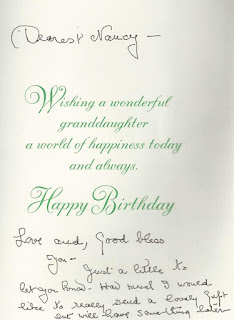 Dearest Nancy —
Wishing a wonderful
granddaughter
a world of happiness today
and always.
Happy Birthday
Love and, Good bless
you — Just a little to
let you know - How much I would
like to really send a lovely gift
but will have something later